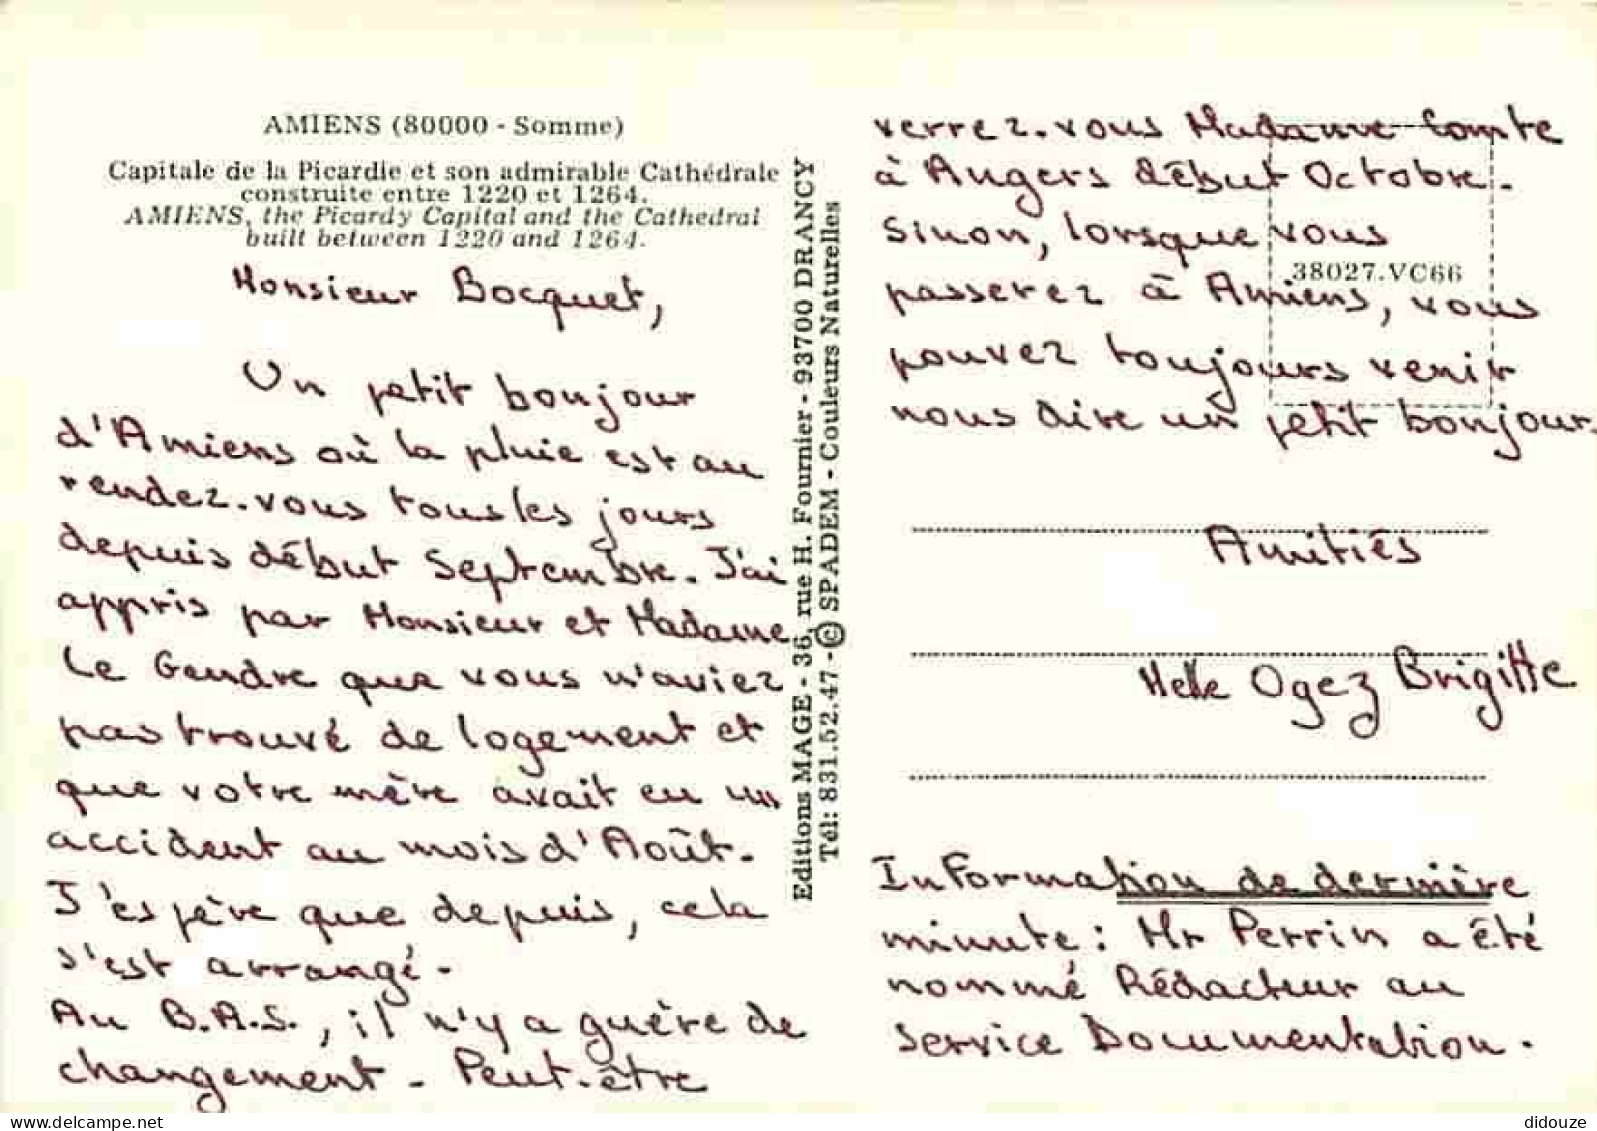 AMIENS (80000 - Somme)
Capitale de la Picardie et son admirable Cathédrale
construite entre 1220 et 1264.
AMIENS, the Picardy Capital and the Cathedral
built between 1220 and 1264.
Monsieur Bocquet,
Un petit bonjour
d'Amiens où la pluie est au
rendez-vous tous les jours
depuis début Septembre. J'ai
appris par Monsieur et Madame
Le Gendre que vous n'aviez
pas trouvé de logement et
que votre mère avait eu un
accident au mois d'Août.
J'espère que depuis, cela
s'est arrangé.
Au B.A.S., il n'y a guère de
changement. Peut-être
Editions MAGE - 36, rue H. Fournier - 93700 DRANCY
Tél: 831.52.47 - © SPADEM - Couleurs Naturelles
verrez-vous Madame Comte
à Angers début Octobre.
Sinon, lorsque vous
38027.VC66
passerez à Amiens, vous
pouvez toujours venir
nous dire un petit bonjour.
Amitiés
Melle Ogez Brigitte
Information de dernière
minute : Mr Perrin a été
nommé Rédacteur au
service Documentation.
didouze